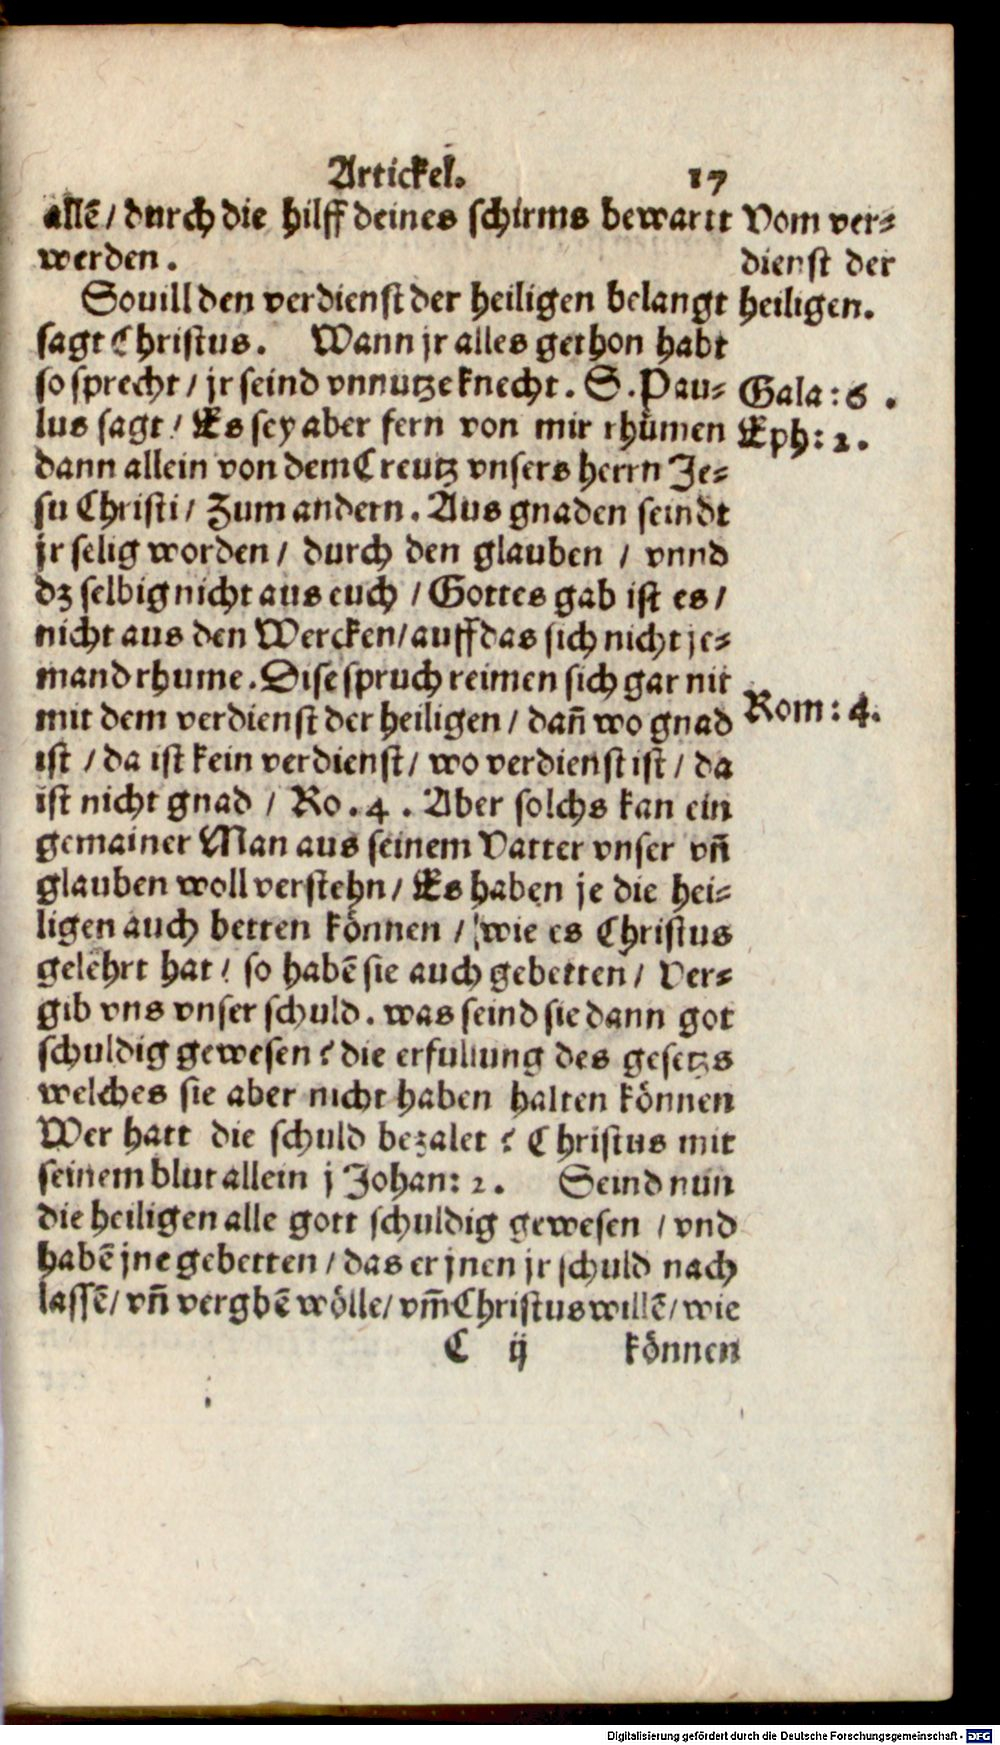 Artickel. 17
allē / durch die hilff deines schirms bewartt
werden.
Souill den verdienst der heiligen belangt
sagt Christus. Wann jr alles gethon habt
so sprecht / jr seind vnnutze knecht. S. Pau-
lus sagt / Es sey aber fern von mir rhümen
dann allein von dem Creutz vnsers herrn Je-
su Christi / Zum andern. Aus gnaden seindt
jr selig worden / durch den glauben / vnnd
dz selbig nicht aus euch / Gottes gab ist es /
nicht aus den Wercken / auff das sich nicht je-
mand rhume. Dise spruch reimen sich gar nit
mit dem verdienst der heiligen / dañ wo gnad
ist / da ist kein verdienst / wo verdienst ist / da
ist nicht gnad / Ro. 4. Aber solchs kan ein
gemainer Man aus seinem Vatter vnser vñ
glauben woll verstehn / Es haben je die hei-
ligen auch betten können / wie es Christus
gelehrt hat / so habē sie auch gebetten / Ver-
gib vns vnser schuld. was seind sie dann got
schuldig gewesen? die erfullung des gesetzs
welches sie aber nicht haben halten können
Wer hatt die schuld bezalet? Christus mit
seinem blut allein j Johan: 2. Seind nun
die heiligen alle gott schuldig gewesen / vnd
habē jne gebetten / das er jnen jr schuld nach
lassē / vñ vergbē wölle / vm̄ Christus willē / wie
C ij können
Vom ver-
dienst der
heiligen.
Gala: 6.
Eph: 2.
Rom: 4.
Digitalisierung gefördert durch die Deutsche Forschungsgemeinschaft - DFG